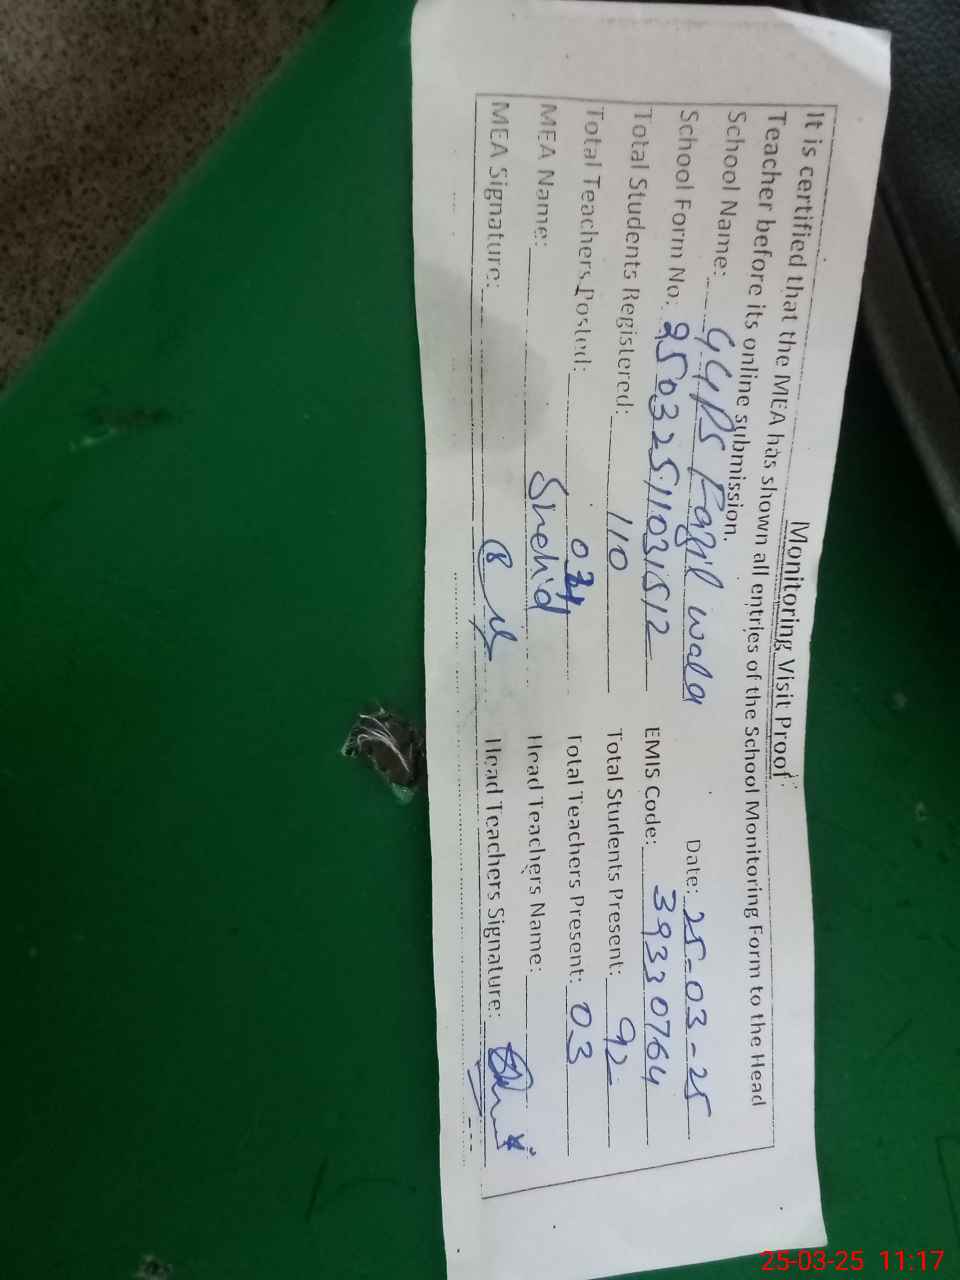 Monitoring Visit Proof
It is certified that the MEA has shown all entries of the School Monitoring Form to the Head
Teacher before its online submission.
School Name: GGPS Fazil wala Date: 25-03-25
School Form No: 25032511031512 EMIS Code: 39330764
Total Students Registered: 110 Total Students Present: 92
Total Teachers Posted: Total Teachers Present: 03
MEA Name: Shehid Head Teachers Name:
MEA Signature: Head Teachers Signature:
25-03-25 11:17